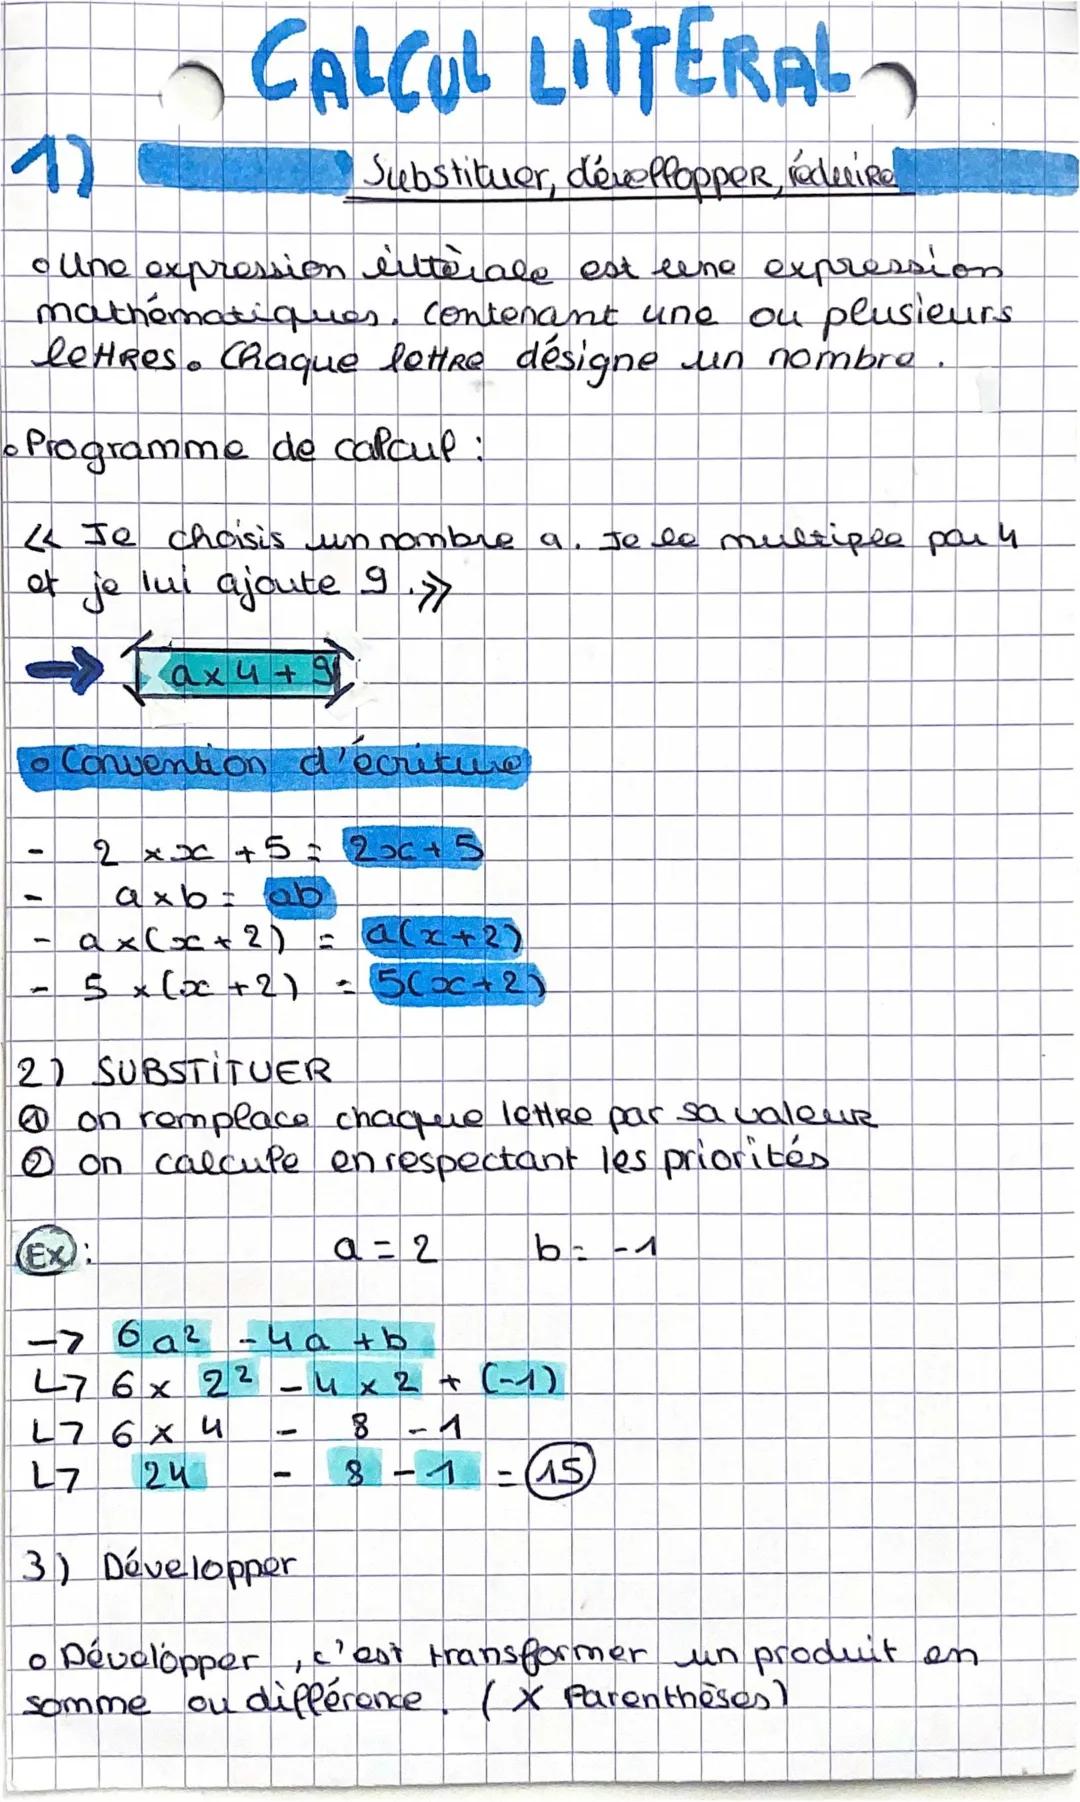 CALCUL LITTERAL
1) Substituer, dévellopper, réduire
• Une expression littérale est une expression
mathématiques. Contenant une ou plusieurs
lettres. Chaque lettre désigne un nombre.
• Programme de calcul :
« Je choisis un nombre a. Je le multiplie par 4
et je lui ajoute 9. »
→ a × 4 + 9
• Convention d'écriture
- 2 × x + 5 = 2x + 5
- a × b = ab
- a × (x + 2) = a(x + 2)
- 5 × (x + 2) = 5(x + 2)
2) SUBSTITUER
① on remplace chaque lettre par sa valeur
② on calcule en respectant les priorités
Ex : a = 2 b = -1
→ 6a² - 4a + b
↳ 6 × 2² - 4 × 2 + (-1)
↳ 6 × 4 - 8 - 1
↳ 24 - 8 - 1 = 15
3) Développer
• Développer, c'est transformer un produit en
somme ou différence. (X Parenthèses)